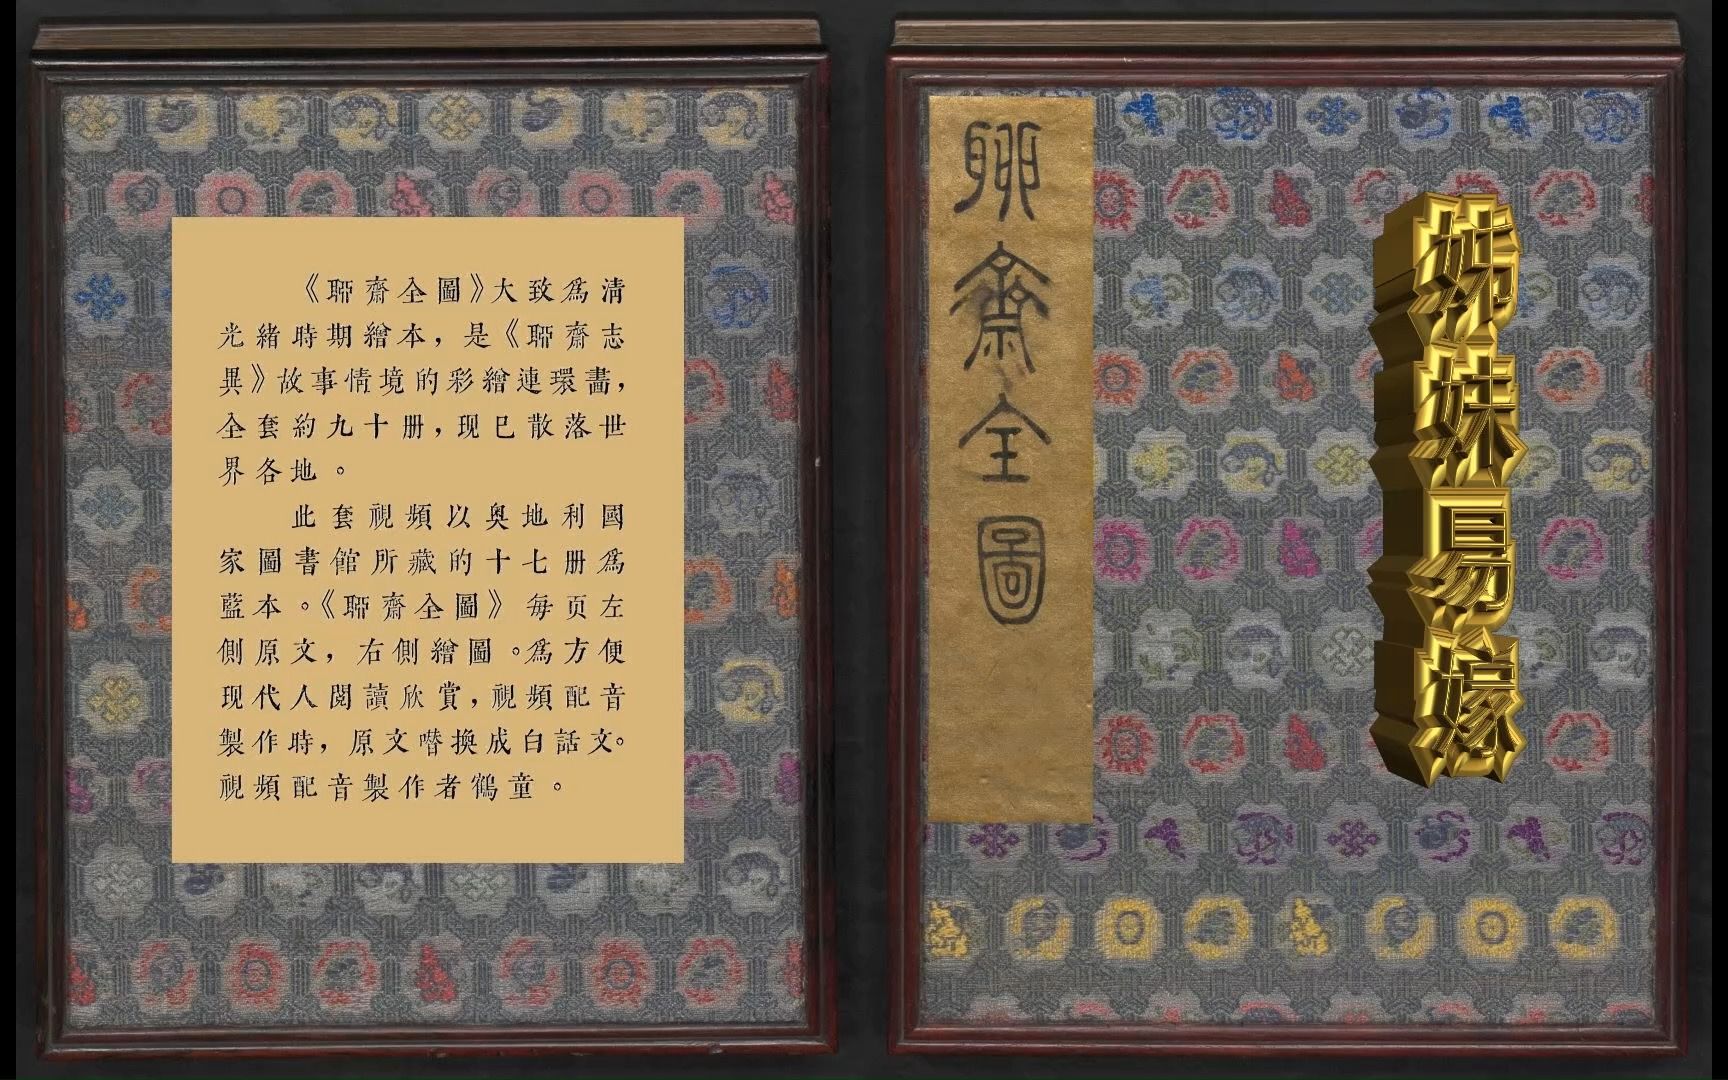 《聊齋全圖》大致爲清
光緒時期繪本，是《聊齋志
異》故事情境的彩繪連環畵，
全套約九十册，现已散落世
界各地。
此套視頻以奥地利國
家圖書館所藏的十七册爲
藍本。《聊齋全圖》每页左
側原文，右側繪圖。爲方便
现代人閲讀欣賞，視頻配音
製作時，原文嚌換成白話文。
視頻配音製作者鶴童。
聊齋全圖
姊妹易嫁